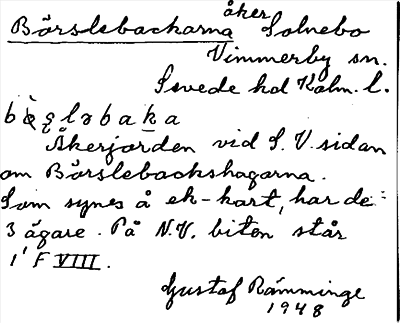 Börslebackarna åker Solnebo
Vimmerby sn.
Sevede hd Kalm. l.
Åkerjorden vid S.V. sidan
om Börslebackshagarna.
Som synes å ek-kart, har de
3 ägare. På N.V. biten står
1' F VIII.
Gustaf Rämminge
1948